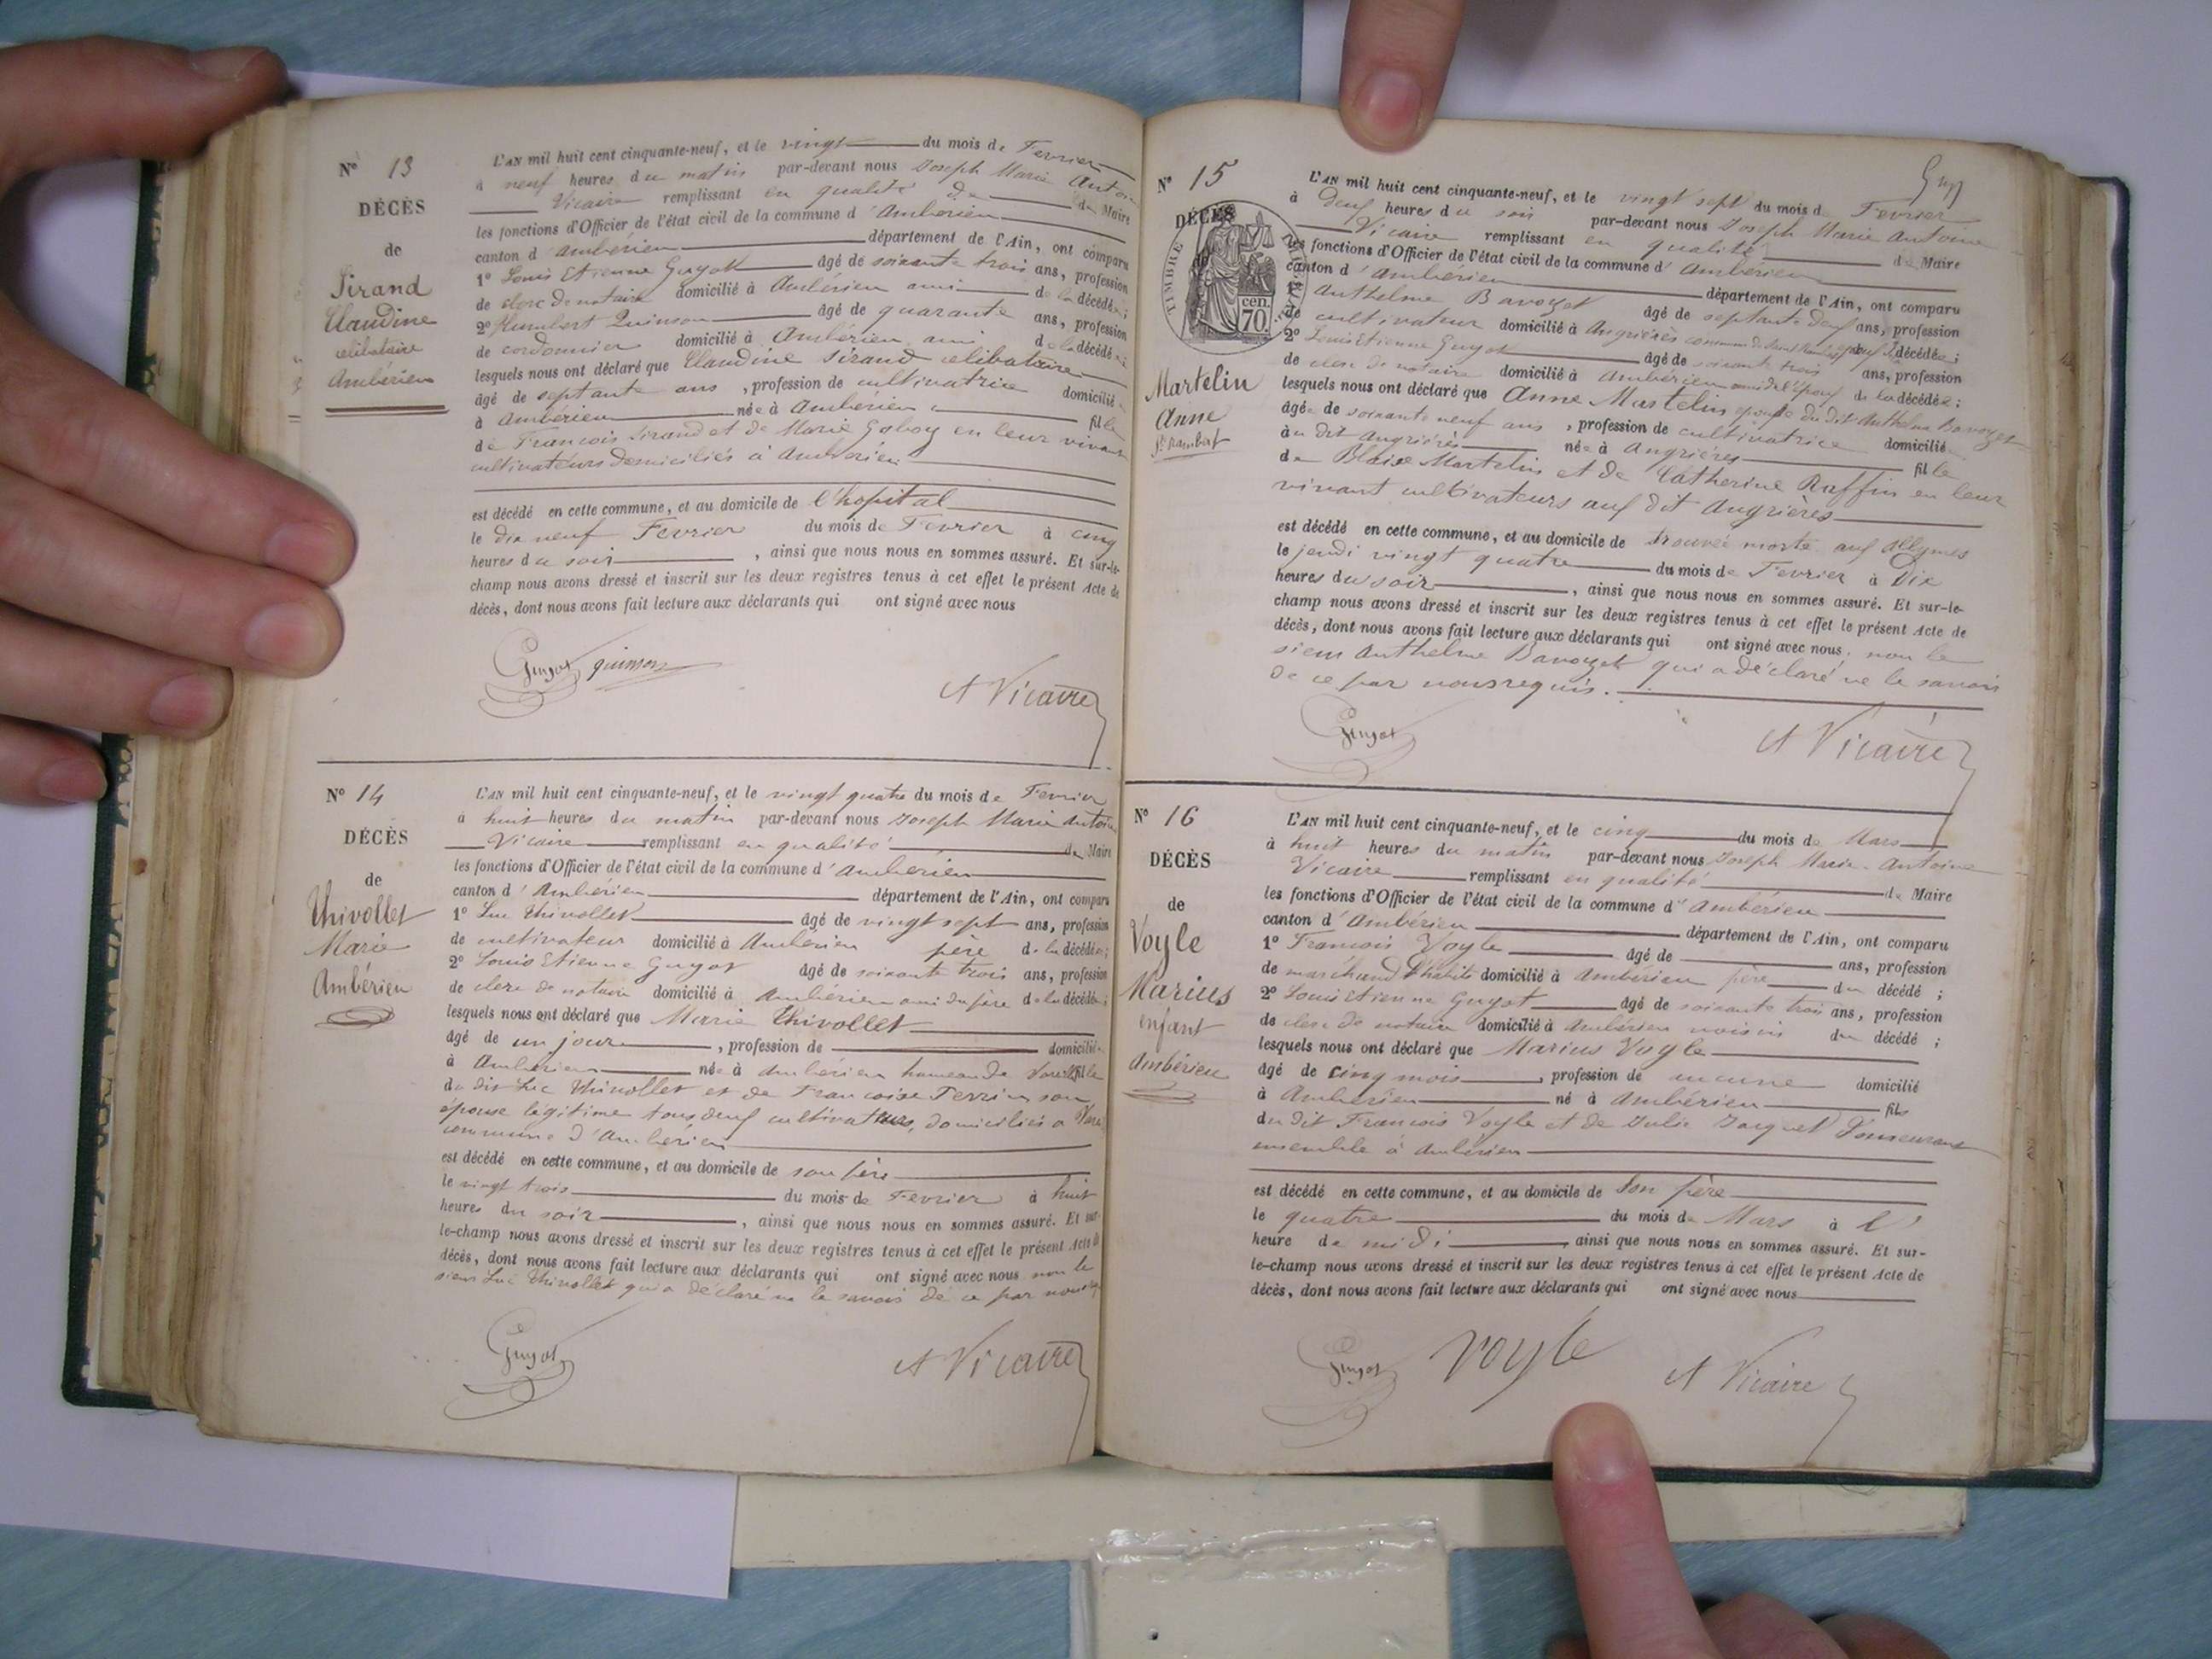 N° 13
DÉCÈS
de
Sirand
Claudine
célibataire
Ambérieu
L'AN mil huit cent cinquante-neuf, et le vingt du mois de Fevrier
à neuf heures du matin par-devant nous Joseph Marie Antoine
Vicaire remplissant en qualité de de Maire
les fonctions d'Officier de l'état civil de la commune d'Ambérieu
canton d'Ambérieu département de l'Ain, ont comparu
1° Louis Etienne Guyot âgé de soixante trois ans, profession
de clerc de notaire domicilié à Ambérieu ami de la décédée;
2° Humbert Quinson âgé de quarante ans, profession
de cordonnier domicilié à Ambérieu ami de la décédée;
lesquels nous ont déclaré que Claudine Sirand célibataire
âgé de septante ans, profession de cultivatrice domiciliée
à Ambérieu née à Ambérieu fille
de François Sirand et de Marie en leur vivant
cultivateurs domiciliés à Ambérieu
est décédé en cette commune, et au domicile de l'hopital
le dix neuf Fevrier du mois de Fevrier à cinq
heures du soir, ainsi que nous nous en sommes assuré. Et sur-le-
champ nous avons dressé et inscrit sur les deux registres tenus à cet effet le présent Acte de
décès, dont nous avons fait lecture aux déclarants qui ont signé avec nous
Guyot quinson
A Vicaire
N° 14
DÉCÈS
de
Thivollet
Marie
Ambérieu
L'AN mil huit cent cinquante-neuf, et le vingt quatre du mois de Fevrier
à huit heures du matin par-devant nous Joseph Marie Antoine
Vicaire remplissant en qualité de Maire
les fonctions d'Officier de l'état civil de la commune d'Ambérieu
canton d'Ambérieu département de l'Ain, ont comparu
1° Luc Thivollet âgé de vingt sept ans, profession
de cultivateur domicilié à Ambérieu père de la décédée;
2° Louis Etienne Guyot âgé de soixante trois ans, profession
de clerc de notaire domicilié à Ambérieu ami du père de la décédée;
lesquels nous ont déclaré que Marie Thivollet
âgé de un jour, profession de domiciliée
à Ambérieu née à Ambérieu hameau de fille
du dit Luc Thivollet et de Francoise Perrin son
épouse légitime tous deux cultivateurs, domiciliés a
commune d'Ambérieu
est décédé en cette commune, et au domicile de son père
le vingt trois du mois de Fevrier à huit
heures du soir, ainsi que nous nous en sommes assuré. Et sur-
le-champ nous avons dressé et inscrit sur les deux registres tenus à cet effet le présent Acte de
décès, dont nous avons fait lecture aux déclarants qui ont signé avec nous non le
sieur Luc Thivollet qui a déclaré ne le savoir de ce par nous
Guyot
A Vicaire
N° 15
DÉCÈS
TIMBRE IMPÉRIAL
cen.
70.
Martelin
Anne
St Rambert
L'AN mil huit cent cinquante-neuf, et le vingt sept du mois de Fevrier
à deux heures du soir par-devant nous Joseph Marie Antoine
Vicaire remplissant en qualité de Maire
les fonctions d'Officier de l'état civil de la commune d'Ambérieu
canton d'Ambérieu département de l'Ain, ont comparu
1° Anthelme Bavozet âgé de septante deux ans, profession
de cultivateur domicilié à Angrières commune de Saint Rambert décédée;
2° Louis Etienne Guyot âgé de soixante trois ans, profession
de clerc de notaire domicilié à Ambérieu ami de l'époux de la décédée;
lesquels nous ont déclaré que Anne Martelin épouse du dit Anthelme Bavozet
âgée de soixante neuf ans, profession de cultivatrice domiciliée
au dit Angrières née à Angrières fille
de Blaise Martelin et de Catherine Raffin en leur
vivant cultivateurs aux dit Angrières
est décédé en cette commune, et au domicile de trouvée morte aux Allymes
le jeudi vingt quatre du mois de Fevrier à Dix
heures du soir, ainsi que nous nous en sommes assuré. Et sur-le-
champ nous avons dressé et inscrit sur les deux registres tenus à cet effet le présent Acte de
décès, dont nous avons fait lecture aux déclarants qui ont signé avec nous, non le
sieur Anthelme Bavozet qui a déclaré ne le savoir
de ce par nous requis.
Guyot
A Vicaire
N° 16
DÉCÈS
de
Voyle
Marius
enfant
Ambérieu
L'AN mil huit cent cinquante-neuf, et le cinq du mois de Mars
à huit heures du matin par-devant nous Joseph Marie Antoine
Vicaire remplissant en qualité de Maire
les fonctions d'Officier de l'état civil de la commune d'Ambérieu
canton d'Ambérieu département de l'Ain, ont comparu
1° Francois Voyle âgé de ans, profession
de marchand d'habits domicilié à Ambérieu père du décédé;
2° Louis Etienne Guyot âgé de soixante trois ans, profession
de clerc de notaire domicilié à Ambérieu voisin du décédé;
lesquels nous ont déclaré que Marius Voyle
âgé de cinq mois, profession de aucune domicilié
à Ambérieu né à Ambérieu fils
du dit Francois Voyle et de Julie Jacquet demeurant
ensemble à Ambérieu
est décédé en cette commune, et au domicile de son père
le quatre du mois de Mars à l'
heure de midi, ainsi que nous nous en sommes assuré. Et sur-
le-champ nous avons dressé et inscrit sur les deux registres tenus à cet effet le présent Acte de
décès, dont nous avons fait lecture aux déclarants qui ont signé avec nous
Guyot voyle A Vicaire